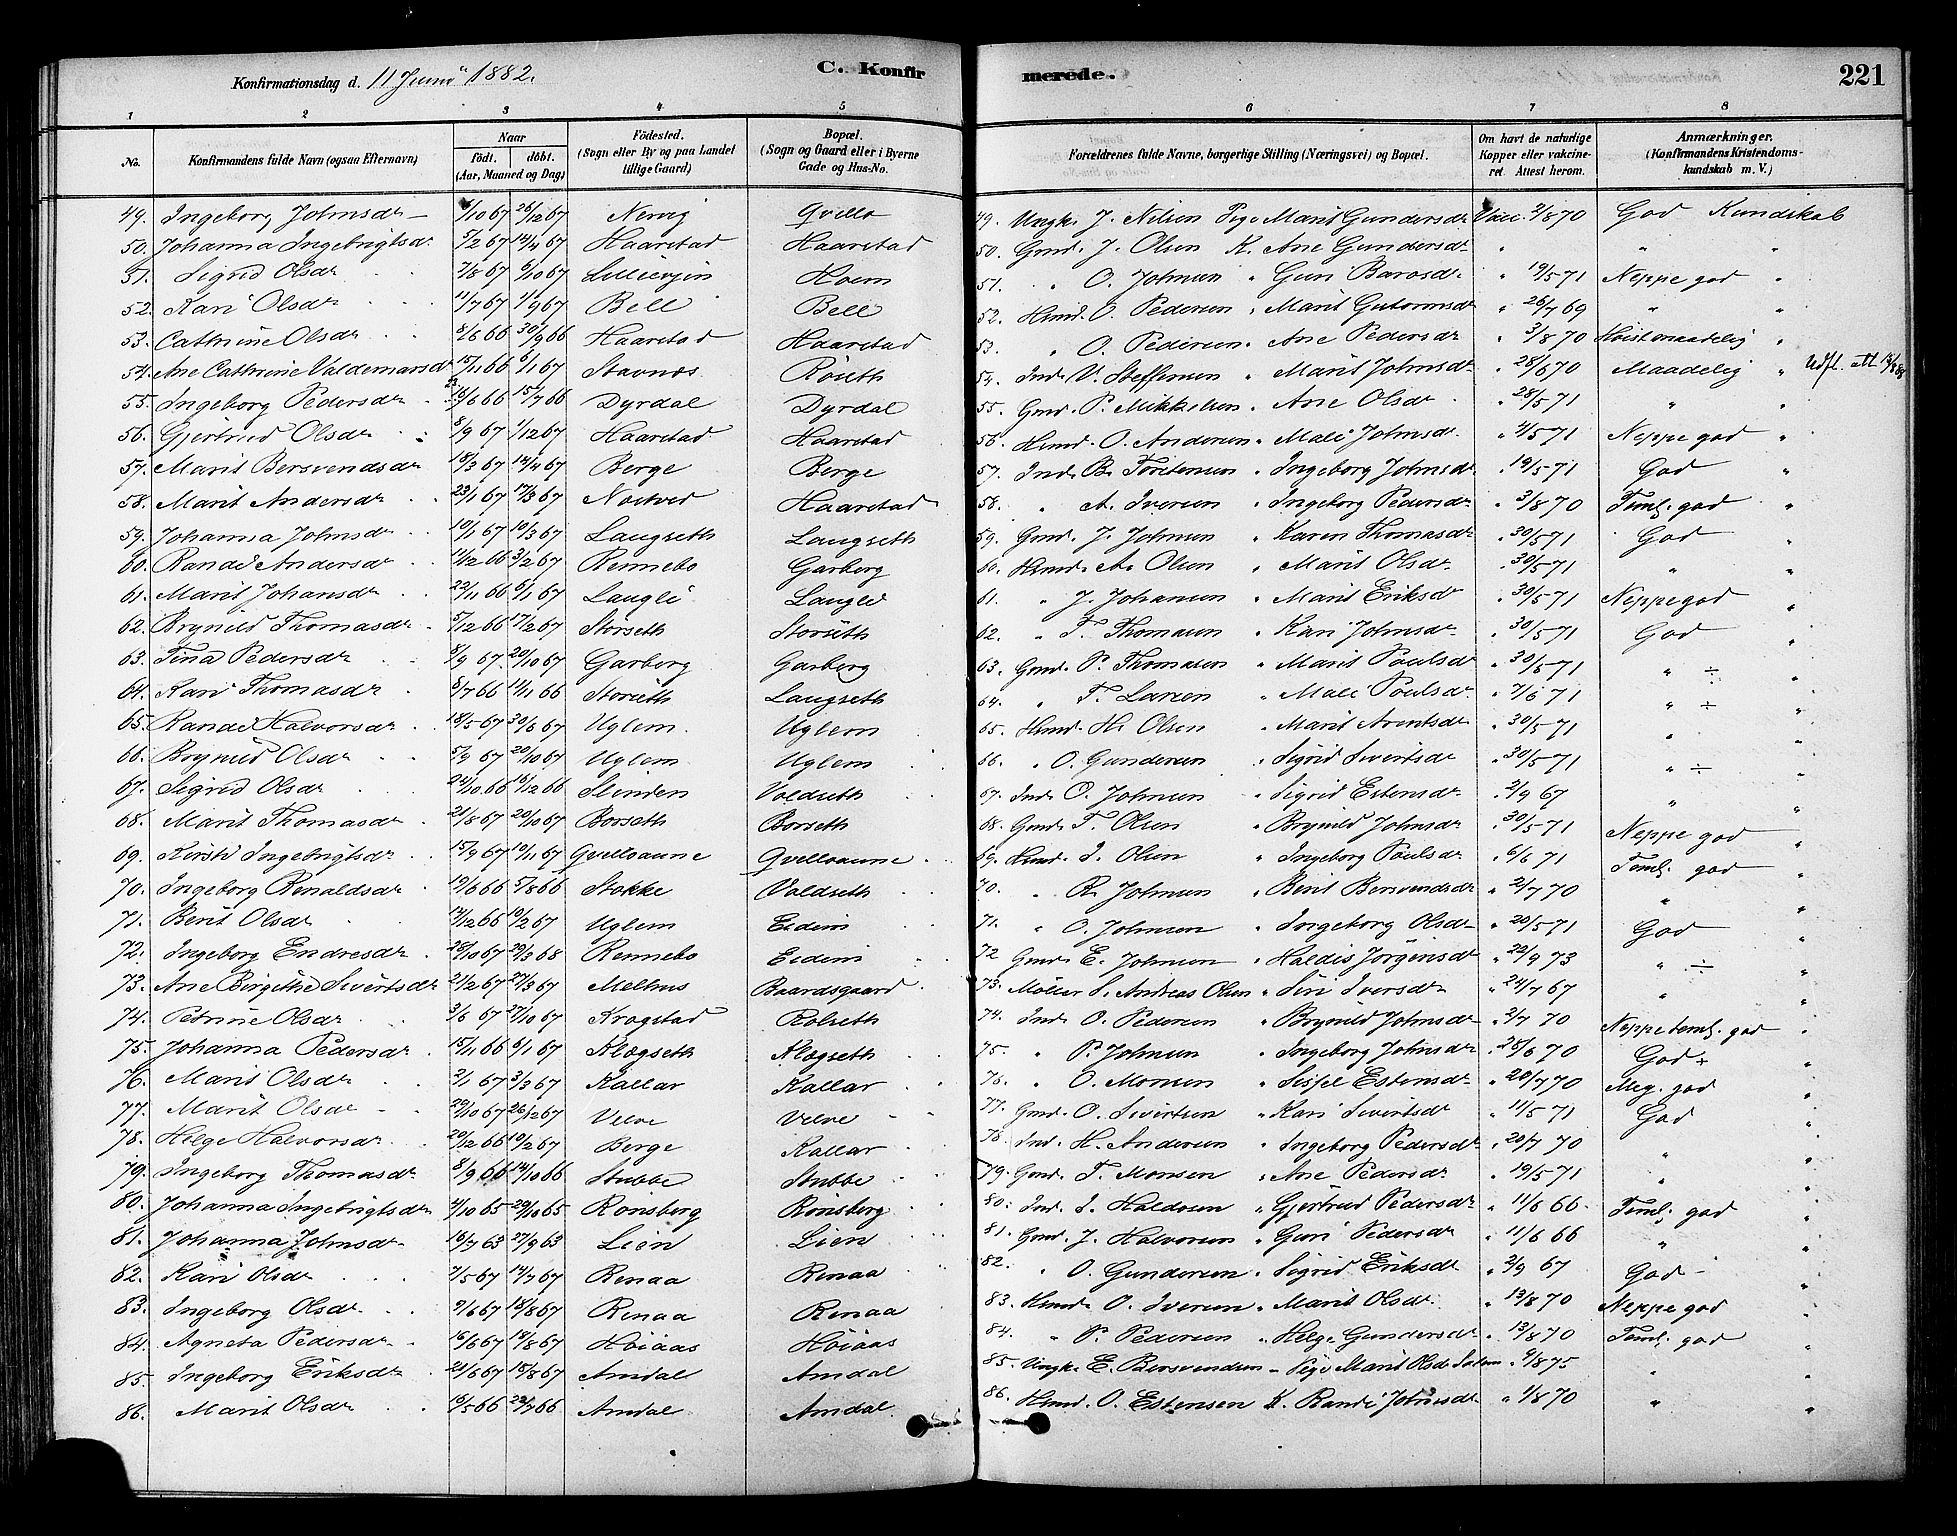 Konfirmationsdag d. 11 Juni 1882. C. Konfirmerede. 221
1 2 3 4 5 6 7 8
No. Konfirmandens fulde Navn (ogsaa Efternavn) Naar født. døbt. (Aar, Maaned og Dag) Födested. (Sogn eller By og paa Landet tillige Gaard) Bopæl. (Sogn og Gaard eller i Byerne Gade og Hus-No. Forældrenes fulde Navne, borgerlige Stilling (Næringsvei) og Bopæl. Om havt de naturlige Kopper eller vakcineret. Attest herom. Anmærkninger. (Konfirmandens Kristendomskundskab m. V.)
49. Ingeborg Johnsdr 26/12 67 Nervig Qvello 49. Ungk. J. Nilsen Pige Marit Gundersdr Vacc. 2/8 70 God Kundskab
50. Johanna Ingebrigtsdr 5/2 67 14/4 67 Haarstad Haarstad 50. Gmd. J. Olsen K. Ane Gundersdr " " "
51. Sigrid Olsdr 7/8 67 6/10 67 Lillievjen Hoem 51. " O. Johnsen " Guri Barosdr " 19/5 71 Neppe god "
52. Kari Olsdr 11/7 67 1/9 67 Bell Bell 52. Hsmd. O. Pedersen " Marit Gutormsdr " 26/7 69 " "
53. Cathrine Olsdr 8/8 66 30/9 66 Haarstad Haarstad 53. " O. Pedersen " Ane Pedersdr " 3/8 70 Høist maadelig "
54. Ane Cathrine Valdemarsdr 15/11 66 6/1 67 Stavnæs Röseth 54. Ind. V. Steffensen " Marit Johnsdr " 28/6 70 Maadelig " Udfl. Att.
55. Ingeborg Pedersdr 15/7 66 Dyrdal Dyrdal 55. Gmd. P. Mikkelsen " Ane Olsdr " 28/5 71 " "
56. Gjertrud Olsdr 8/9 67 1/12 67 Haarstad Haarstad 56. Hsmd. O. Andersen " Mali Johnsdr " 2/5 71 Neppe god "
57. Marit Bersvendsdr 18/3 67 14/4 67 Berge Berge 57. Ind. B. Torstensen " Ingeborg Johnsdr " 19/5 71 God "
58. Marit Andersdr 23/1 67 17/3 67 Nostved Haarstad 58. " A. Iversen " Ingeborg Pedersdr " 3/8 70 Teml. god "
59. Johanna Johnsdr 10/1 67 10/3 67 Langseth Langseth 59. Gmd. J. Johnsen " Karen Thomasdr " 30/5 71 God "
60. Randi Andersdr 11/12 66 3/2 67 Rennebo Garberg 60. Hsmd. A. Olsen " Marit Olsdr " 30/5 71 " "
61. Marit Johansdr 22/11 66 6/1 67 Langli Langli 61. " J. Johansen " Marit Eriksdr " 30/5 71 Neppe god "
62. Brynild Thomasdr 5/12 66 17/2 67 Storseth Storseth 62. " T. Thomasen " Kari Johnsdr " 30/5 71 God "
63. Tina Pedersdr 8/9 67 20/10 67 Garberg Garberg 63. Gmd. P. Thomasen " Marit Poulsdr " 30/5 71 " ÷ "
64. Kari Thomasdr 8/7 66 11/11 66 Storseth Langseth 64. " T. Larsen " Mali Poulsdr " 7/6 71 " ÷ "
65. Randi Halvorsdr 18/5 67 30/6 67 Uglem Uglem 65. Hsmd. H. Olsen " Marit Arentsdr " 30/5 71 " "
66. Brynild Olsdr 5/9 67 20/10 67 Uglem Uglem 66. " O. Gundersen " Sigrid Sivertsdr " 30/5 71 " ÷ "
67. Sigrid Olsdr 24/10 66 16/12 66 Slinden Voldseth 67. Ind. O. Johnsen " Sigrid Estensdr " 2/9 67 " "
68. Marit Thomasdr 21/8 67 20/10 67 Borseth Borseth 68. Gmd. T. Olsen " Brynild Johnsdr " 30/5 71 Neppe god "
69. Kirsti Ingebrigtsdr 15/9 67 10/11 67 Qvelloaune Qvelloaune 69. Hsmd. I. Olsen " Ingeborg Poulsdr " 6/6 71 Teml. god "
70. Ingeborg Renaldsdr 19/6 66 5/8 66 Stokke Voldseth 70. " R. Johnsen " Berit Bersvendsdr " 2/7 70 " "
71. Berit Olsdr 17/12 66 10/2 67 Uglem Eidem 71. " O. Johnsen " Ingeborg Olsdr " 20/5 71 God "
72. Ingeborg Endresdr 28/10 67 29/3 68 Rennebo Eidem 72 Gmd. E. Johnsen " Haldis Jörgensdr " 22/9 73 " ÷ "
73. Ane Birgithe Sivertsdr 21/2 67 27/3 67 Melhus Baardsgaard 73. Möller S. Andreas Olsen " Siri Iversdr " 24/7 67 " "
74. Petrine Olsdr 3/6 67 27/10 67 Krogstad Rolseth 74. Ind. O. Pedersen " Brynild Johnsdr " 2/7 70 Neppe teml. god "
75. Johanna Pedersdr 15/11 66 6/1 67 Klægseth Klægseth 75. " P. Johnsen " Ingeborg Johnsdr " 28/6 70 God ÷ "
76. Marit Olsdr 2/1 67 3/3 67 Kallar Kallar 76. " O. Monsen " Sissel Estensdr " 20/7 70 Meg. god "
77. Marit Olsdr 29/10 67 26/12 67 Velve Velve 77. Gmd. O. Sivertsen " Kari Sivertsdr " 11/5 71 God "
78. Helge Halvorsdr 20/12 66 10/2 67 Berge Kallar 78. Ind. H. Andersen " Ingeborg Pedersdr " 20/7 70 " "
79. Ingeborg Thomasdr 8/9 66 14/10 66 Stubbe Stubbe 79. Gmd. T. Monsen " Ane Pedersdr " 19/5 71 " "
80. Johanna Ingebrigtsdr 4/10 65 29/10 65 Rönsberg Rönsberg 80. Ind. I. Haldosen " Gjertrud Pedersdr " 11/6 66 Teml. god "
81. Johanna Johnsdr 16/7 63 27/9 63 Lien Lien 81. Gmd. J. Halvorsen " Guri Pedersdr " 11/6 66 " "
82. Kari Olsdr 7/5 67 14/7 67 Renaa Renaa 82. " O. Gundersen " Sigrid Eriksdr " 2/9 67 God "
83. Ingeborg Olsdr 9/6 67 18/8 67 Renaa Renaa 83. Hsmd. O. Iversen " Marit Olsdr " 13/8 70 Neppe god "
84. Agneta Pedersdr 16/6 67 18/8 67 Höiaas Höiaas 84. " P. Pedersen " Helge Gundersdr " 13/8 70 Teml. god "
85. Ingeborg Eriksdr 23/6 67 18/8 67 Amdal Amdal 85. Ungk. E. Bersvendsen - Pige Marit Olsdr 9/8 75 " "
86. Marit Olsdr 10/5 66 22/7 66 Amdal Amdal 86. Hsmd. O. Estensen K. Randi Johnsdr " 1/8 70 " "